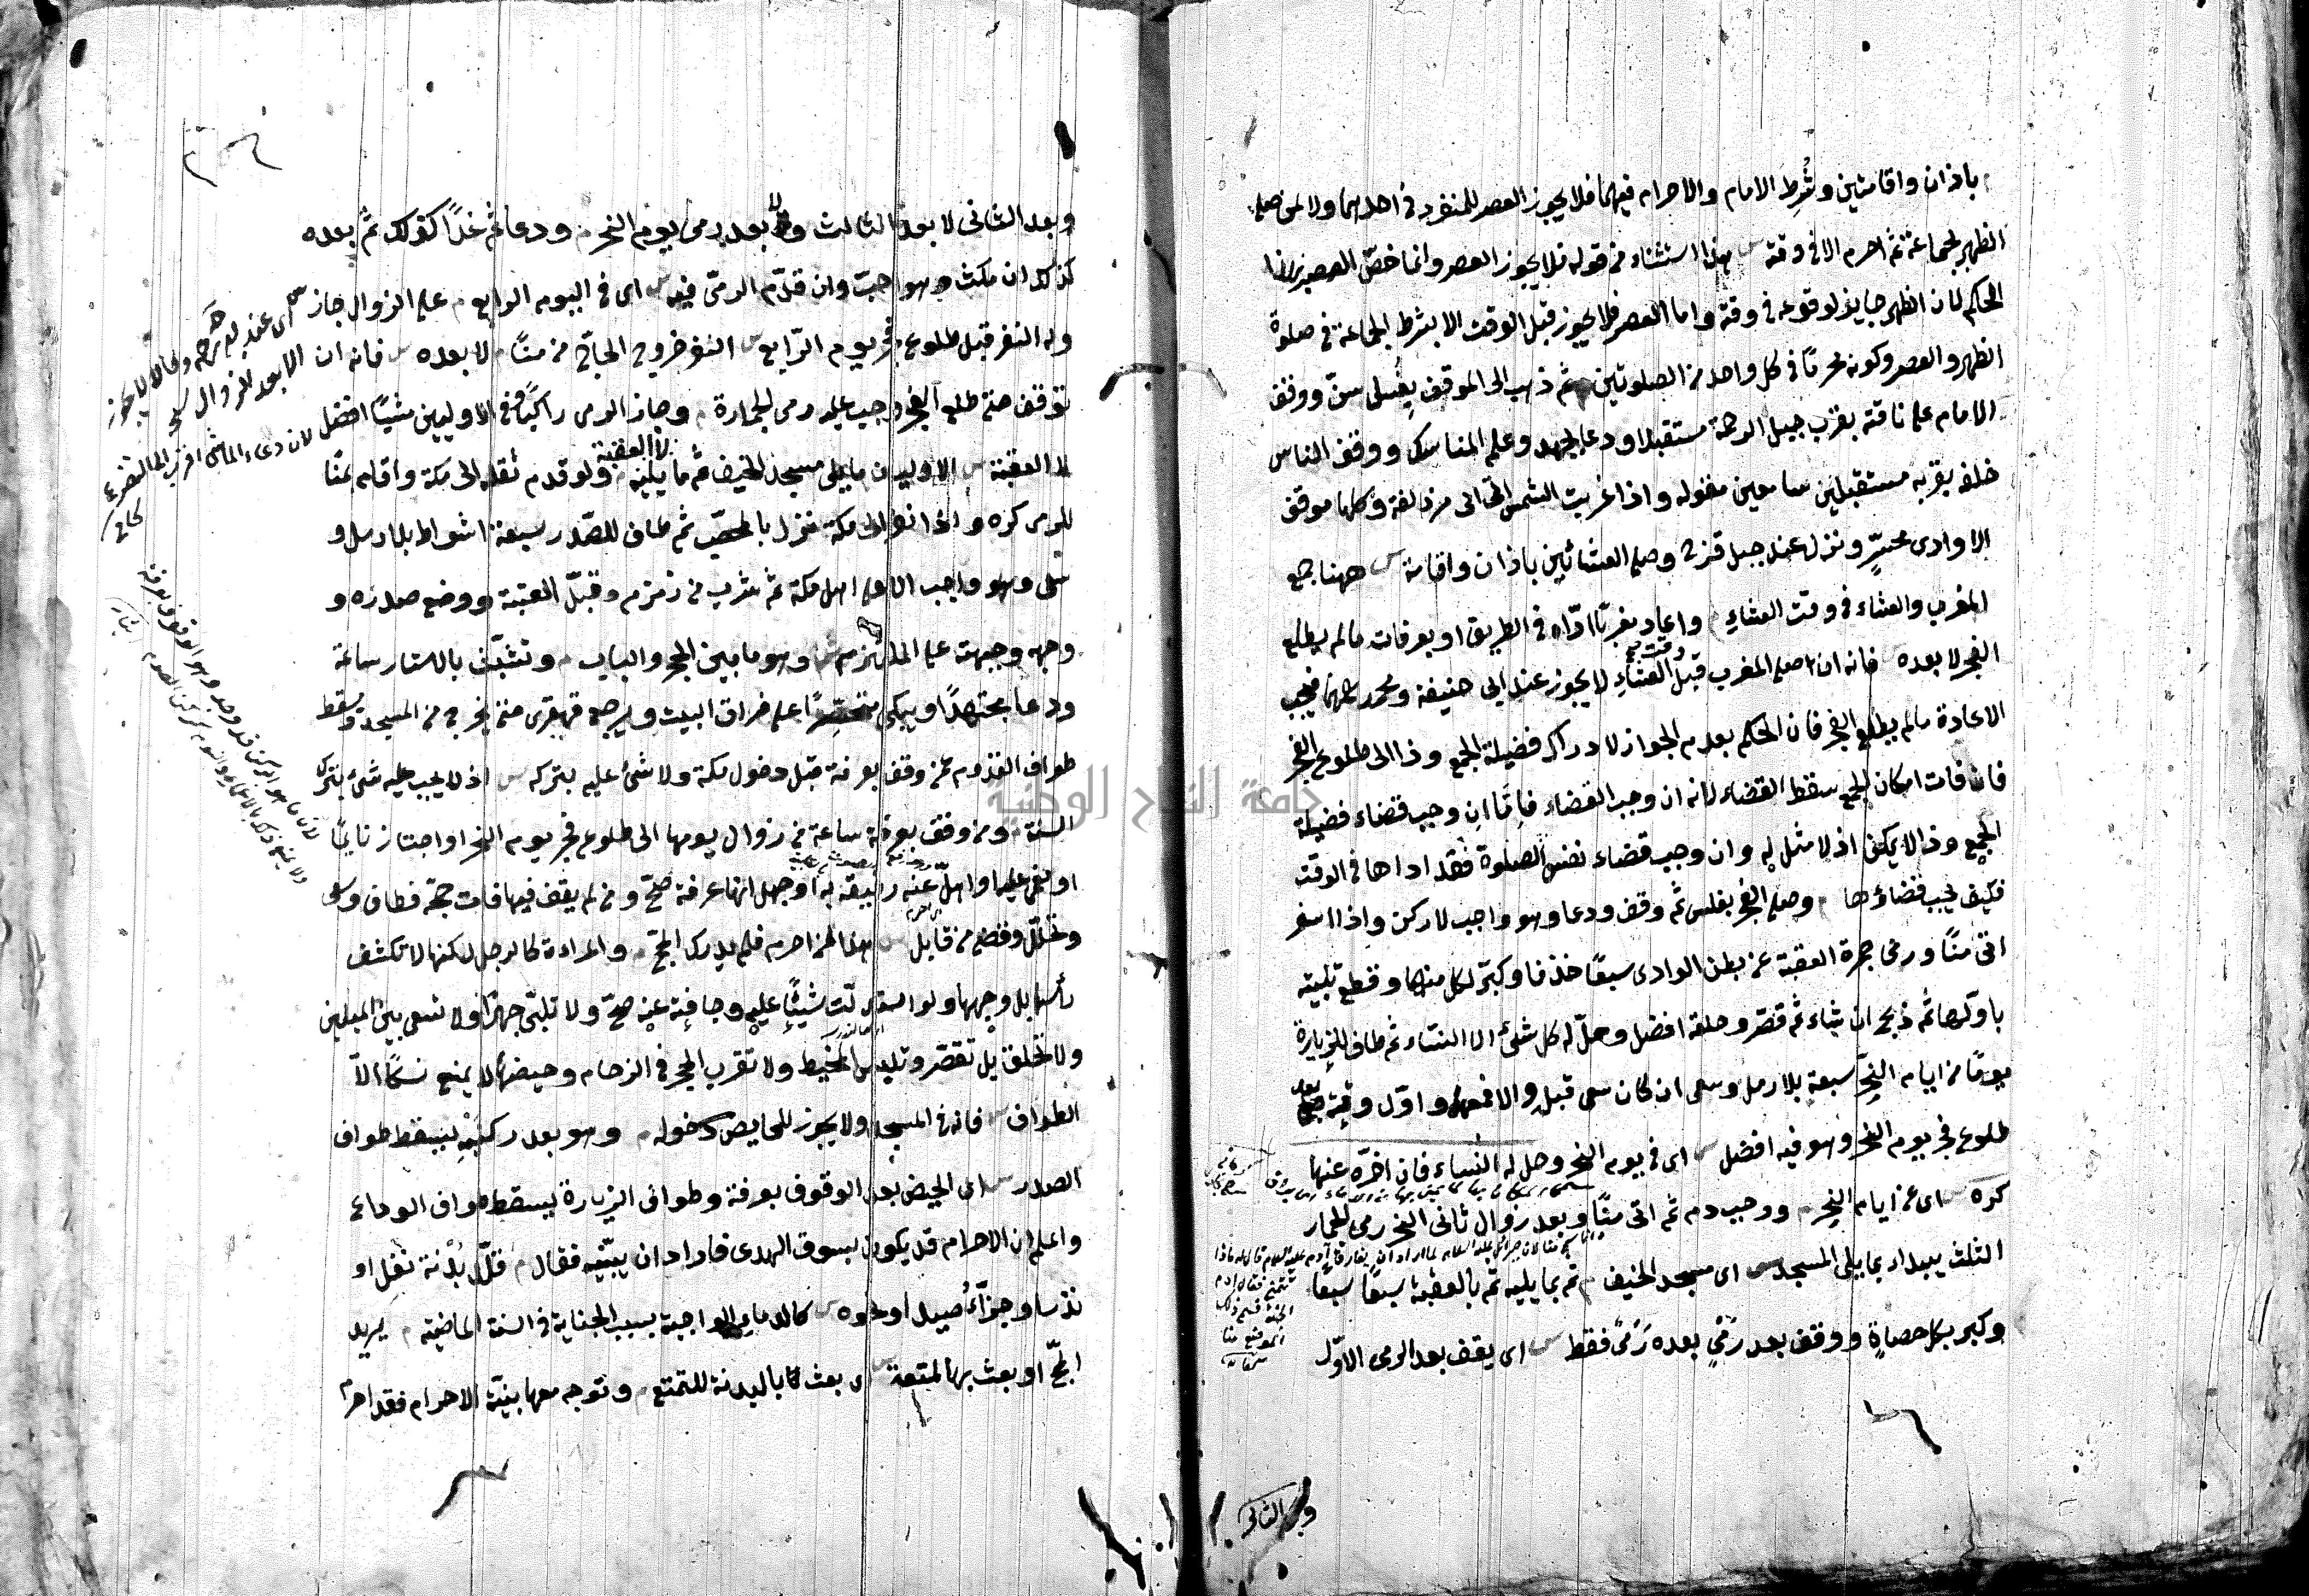 م باذان واقامتين وشُرِط الامام والاحرام فيهما فلا يجوز العصر للمنفرد فى احدهما ولا لمن صلى
الظهر بجماعة ثم احرم الا فى وقته س هذا استثناء من قوله فلا يجوز العصر وانما خصّ العصر بهذا
الحكم لان الظهر جايز لوقوعه فى وقته واما العصر فلا يجوز قبل الوقت الا بشرط الجماعة فى صلوة
الظهر والعصر وكونه محرمًا فى كل واحد من الصلوتين م ثم ذهب الى الموقف بغُسل سنّ ووقف
الامام على ناقته بقرب جبل الرحمة مستقبلا ودعا بجهد وعلم المناسك ووقف الناس
خلفه بقربه مستقبلين سامعين مقوله واذا غربت الشمس اتى مزدلفة وكلها موقف
الا وادى محسِّر ونزل عند جبل قزح وصلى العشائين باذان واقامة س ههنا جمع
المغرب والعشاء فى وقت العشاء م واعاد مغربًا ادّاه فى الطريق او بعرفات مالم يطلع
الفجر لا بعده فانه ان صلى المغرب قبل وقت العشاء لا يجوز عند ابى حنيفة ومحمد فيجب
الاعادة مالم يطلع الفجر فان الحكم بعدم الجواز لادراك فضيلة الجمع وذا الى طلوع الفجر
فان فات امكان الجمع سقط القضاء لانه ان وجب القضاء فامّا ان وجب قضاء فضيلة
الجمع وذا لا يمكن اذ لا مثل له وان وجب قضاء نفس الصلوة فقد اداها فى الوقت
فكيف يجب قضاؤها م وصلى الفجر بغلس ثم وقف ودعا وهو واجب لا ركن واذا اسفر
اتى منًا ورمى جمرة العقبة من بطن الوادى سبعًا خذفا وكبّر لكل منها وقطع تلبيته
باولها ثم ذبح ان شاء ثم قصّر وحلقه افضل وحلّ له كل شئ الا النساء ثم طاف للزيارة
يومًا من ايام النحر سبعة بلا رمل وسعى ان كان سعى قبل والا فمعهما واوّل وقته بعد
طلوع فجر يوم النحر وهو فيه افضل س اى فى يوم النحر وحل له النساء فان اخّره عنها
كره س اى عن ايام النحر م ووجب دم ثم اتى منًا وبعد زوال ثانى النحر رمى الجمار
الثلث يبداء بما يلى المسجد س اى مسجد الخيف م ثم بما يليه ثم بالعقبة سبعًا سبعًا
وكبر بكل حصاةٍ ووقف بعد رَمْىٍ بعده رَمْىٌ فقط س اى يقف بعد الرمى الاوّل
وبعد الثانى
وبعد الثانى لا بعد الثالث ولا بعد رمى يوم النحر م ودعا ثم غدًا كذلك ثم بعده
كذلك ان مكث وهو احبّ وان قدّم الرمى فيه س اى فى اليوم الرابع م على الزوال جاز
وله النفر قبل طلوع فجر يوم الرّابع س النفر خروج الحاجّ من منًا م لا بعده س فانه ان
توقف حتى طلع الفجر وجب عليه رمى الجمارة م وجاز الرمى راكبًا وفى الاوليين مشيًا افضل
لا العقبة س الاوليان مايلى مسجد الخيف ثم ما يليه م ولو قدم ثقله الى مكة واقام بمنًا
للرمى كره واذا نفر الى مكة نزل بالمحصّب ثم طاف للصّدر سبعة اشواط بلا رمل و
سعى وهو واجب الا على اهل مكة ثم شرب من زمزم وقبّل العتبة ووضع صدره و
وجهه على الملتزم س وهو مابين الحجر والباب م وتشبّث بالاستار ساعة
ودعا مجتهدًا ويبكى متحسّرًا على فراق البيت ويرجع قهقرى حتى يخرج من المسجد وسقط
طواف القدوم عن وقف بعرفة قبل دخول مكة ولا شئ عليه بتركه س اذ لا يجب عليه شئ بترك
السنة م ومن وقف بعرفة ساعة من زوال يومها الى طلوع فجر يوم النحر او اجتاز نايمًا
او مغمى عليه او اهلّ عنه رفيقه به او جهل انها عرفة صحّ ومن لم يقف فيها فات حجّه فطاف وسعى
وتحلّل وقضى من قابل س هذا لمن احرم فلم يدرك الحجّ م والمراءة كالرجل لكنها لا تكشف
رأسها بل وجهها ولو اسدلت شيئًا عليه وجافته عنه صحّ ولا تلبّى جهرًا ولا تسعى بين الميلين
ولا تحلق بل تقصّر وتلبس المخيط ولا تقرب الحجر فى الزحام وحيضها لا يمنع نسكًا الّا
الطواف س فانه فى المسجد ولا يجوز للحايض دخوله م وهو بعد ركنيه يسقط طواف
الصدر س اى الحيض بعد الوقوف بعرفة وطواف الزيارة يسقط طواف الوداع
واعلم ان الاحرام قد يكون بسوق الهدى فاراد ان يبيّنه فقال م قلّد بُدْنة نفل او
نذر او جزاء صيد او نحوه س كالدماء الواجبة بسبب الجناية فى السنة الماضية م يريد
الحجّ او بعث بها لمتعة س اى بعث بالبدنة للتمتع م وتوجه معها بنيّة الاحرام فقد احرم